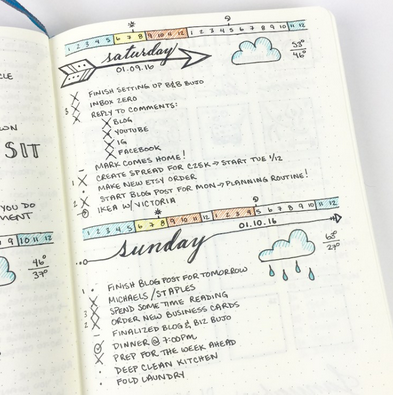 CLE
ON
SIT
YOU DO
MENT
9 10 11 12
46°
37°
1 2 3 4 5 6 7 8 9 10 11 12 1 2 3 4 5 6 7 8 9 10 11 12
saturday
01.09.16
53°
46°
3 X FINISH SETTING UP B&B BUJO
X INBOX ZERO
3 X REPLY TO COMMENTS:
X BLOG
X YOUTUBE
X IG
X FACEBOOK
– MARK COMES HOME!
1 X CREATE SPREAD FOR CZEK → START TUE 1/12
X MAKE NEW ETSY ORDER
2 X START BLOG POST FOR MON → PLANNING ROUTINE!
IKEA W/ VICTORIA
1 2 3 4 5 6 7 8 9 10 11 12 1 2 3 4 5 6 7 8 9 10 11 12
sunday
01.10.16
63°
29°
1 • FINISH BLOG POST FOR TOMORROW
X MICHAELS / STAPLES
3 X SPEND SOME TIME READING
2 X ORDER NEW BUSINESS CARDS
– FINALIZED BLOG & BIZ BUJO
DINNER @ 7:00PM
X PREP FOR THE WEEK AHEAD
• DEEP CLEAN KITCHEN
• FOLD LAUNDRY